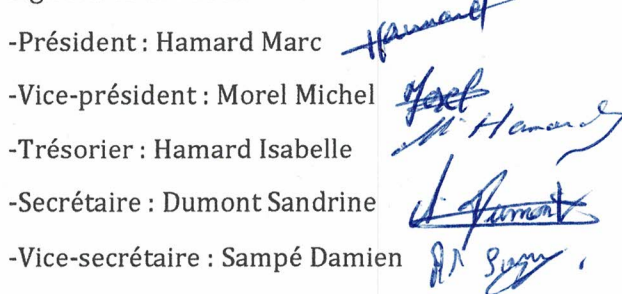 -Président : Hamard Marc Hamard
-Vice-président : Morel Michel Morel
-Trésorier : Hamard Isabelle Hamard
-Secrétaire : Dumont Sandrine Dumont
-Vice-secrétaire : Sampé Damien